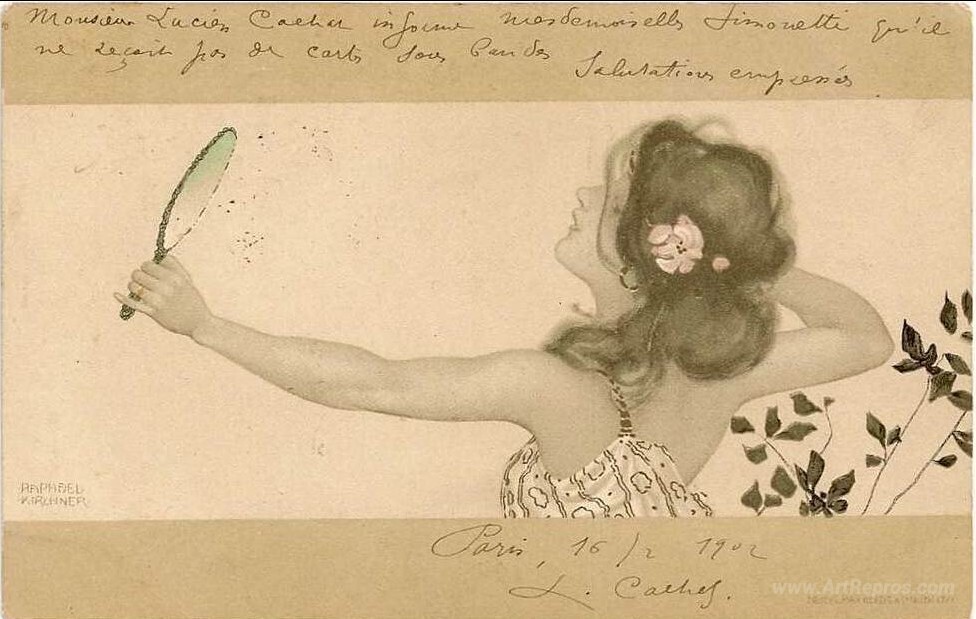 Monsieur Lucien Cachet informe mesdemoiselles Simonetti qu'il
ne reçoit pas de carts sous bandes
Salutations empressés
RAPHAEL
KIRCHNER
Paris, 16/2 1902
L. Cachet.
www.ArtRepros.com